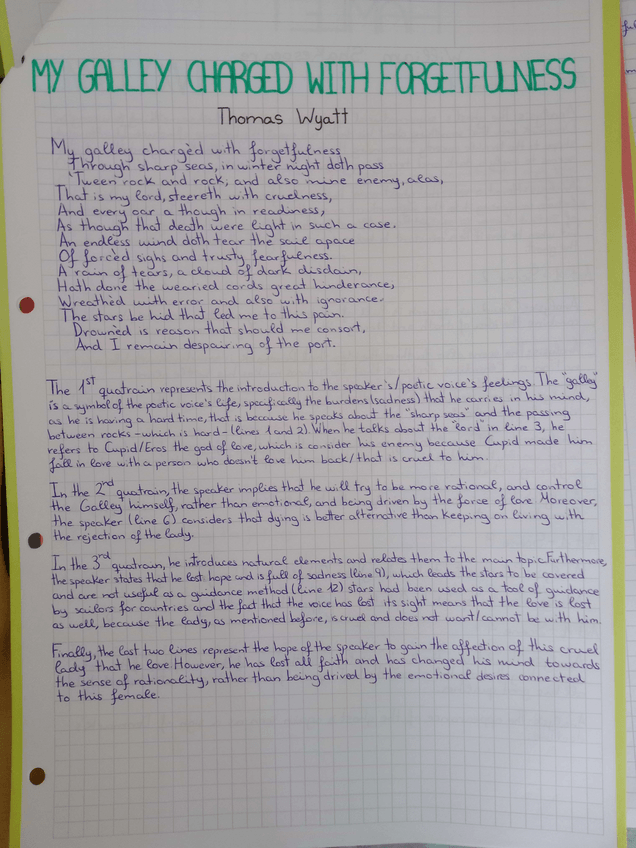 MY GALLEY CHARGED WITH FORGETFULNESS
Thomas Wyatt
My galley chargèd with forgetfulness
Through sharp seas, in winter night doth pass
'Tween rock and rock; and also mine enemy, alas,
That is my lord, steereth with cruelness,
And every oar a though in readiness,
As though that death were light in such a case.
An endless wind doth tear the sail apace
Of forcèd sighs and trusty fearfulness.
A rain of tears, a cloud of dark disdain,
Hath done the wearied cords great hinderance,
Wreathèd with error and also with ignorance.
The stars be hid that led me to this pain.
Drownèd is reason that should me consort,
And I remain despairing of the port.
The 1ST quatrain represents the introduction to the speaker's/poetic voice's feelings. The "galley"
is a symbol of the poetic voice's life, specifically the burdens (sadness) that he carries in his mind,
as he is having a hard time, that is because he speaks about the "sharp seas" and the passing
between rocks -which is hard- (lines 1 and 2). When he talks about the "lord" in line 3, he
refers to Cupid/Eros the god of love, which is consider his enemy because Cupid made him
fall in love with a person who doesn't love him back/that is cruel to him.
In the 2nd quatrain, the speaker implies that he will try to be more rational, and control
the Galley himself, rather than emotional, and being driven by the force of love. Moreover,
the speaker (line 6) considers that dying is better alternative than keeping on living with
the rejection of the lady.
In the 3rd quatrain, he introduces natural elements and relates them to the main topic. Furthermore,
the speaker states that he lost hope and is full of sadness (line 9), which leads the stars to be covered
and are not useful as a guidance method (line 12) stars had been used as a tool of guidance
by sailors for countries and the fact that the voice has lost its sight means that the love is lost
as well, because the lady, as mentioned before, is cruel and does not want/cannot be with him.
Finally, the last two lines represent the hope of the speaker to gain the affection of this cruel
lady that he love. However, he has lost all faith and has changed his mind towards
the sense of rationality, rather than being drived by the emotional desires connected
to this female.